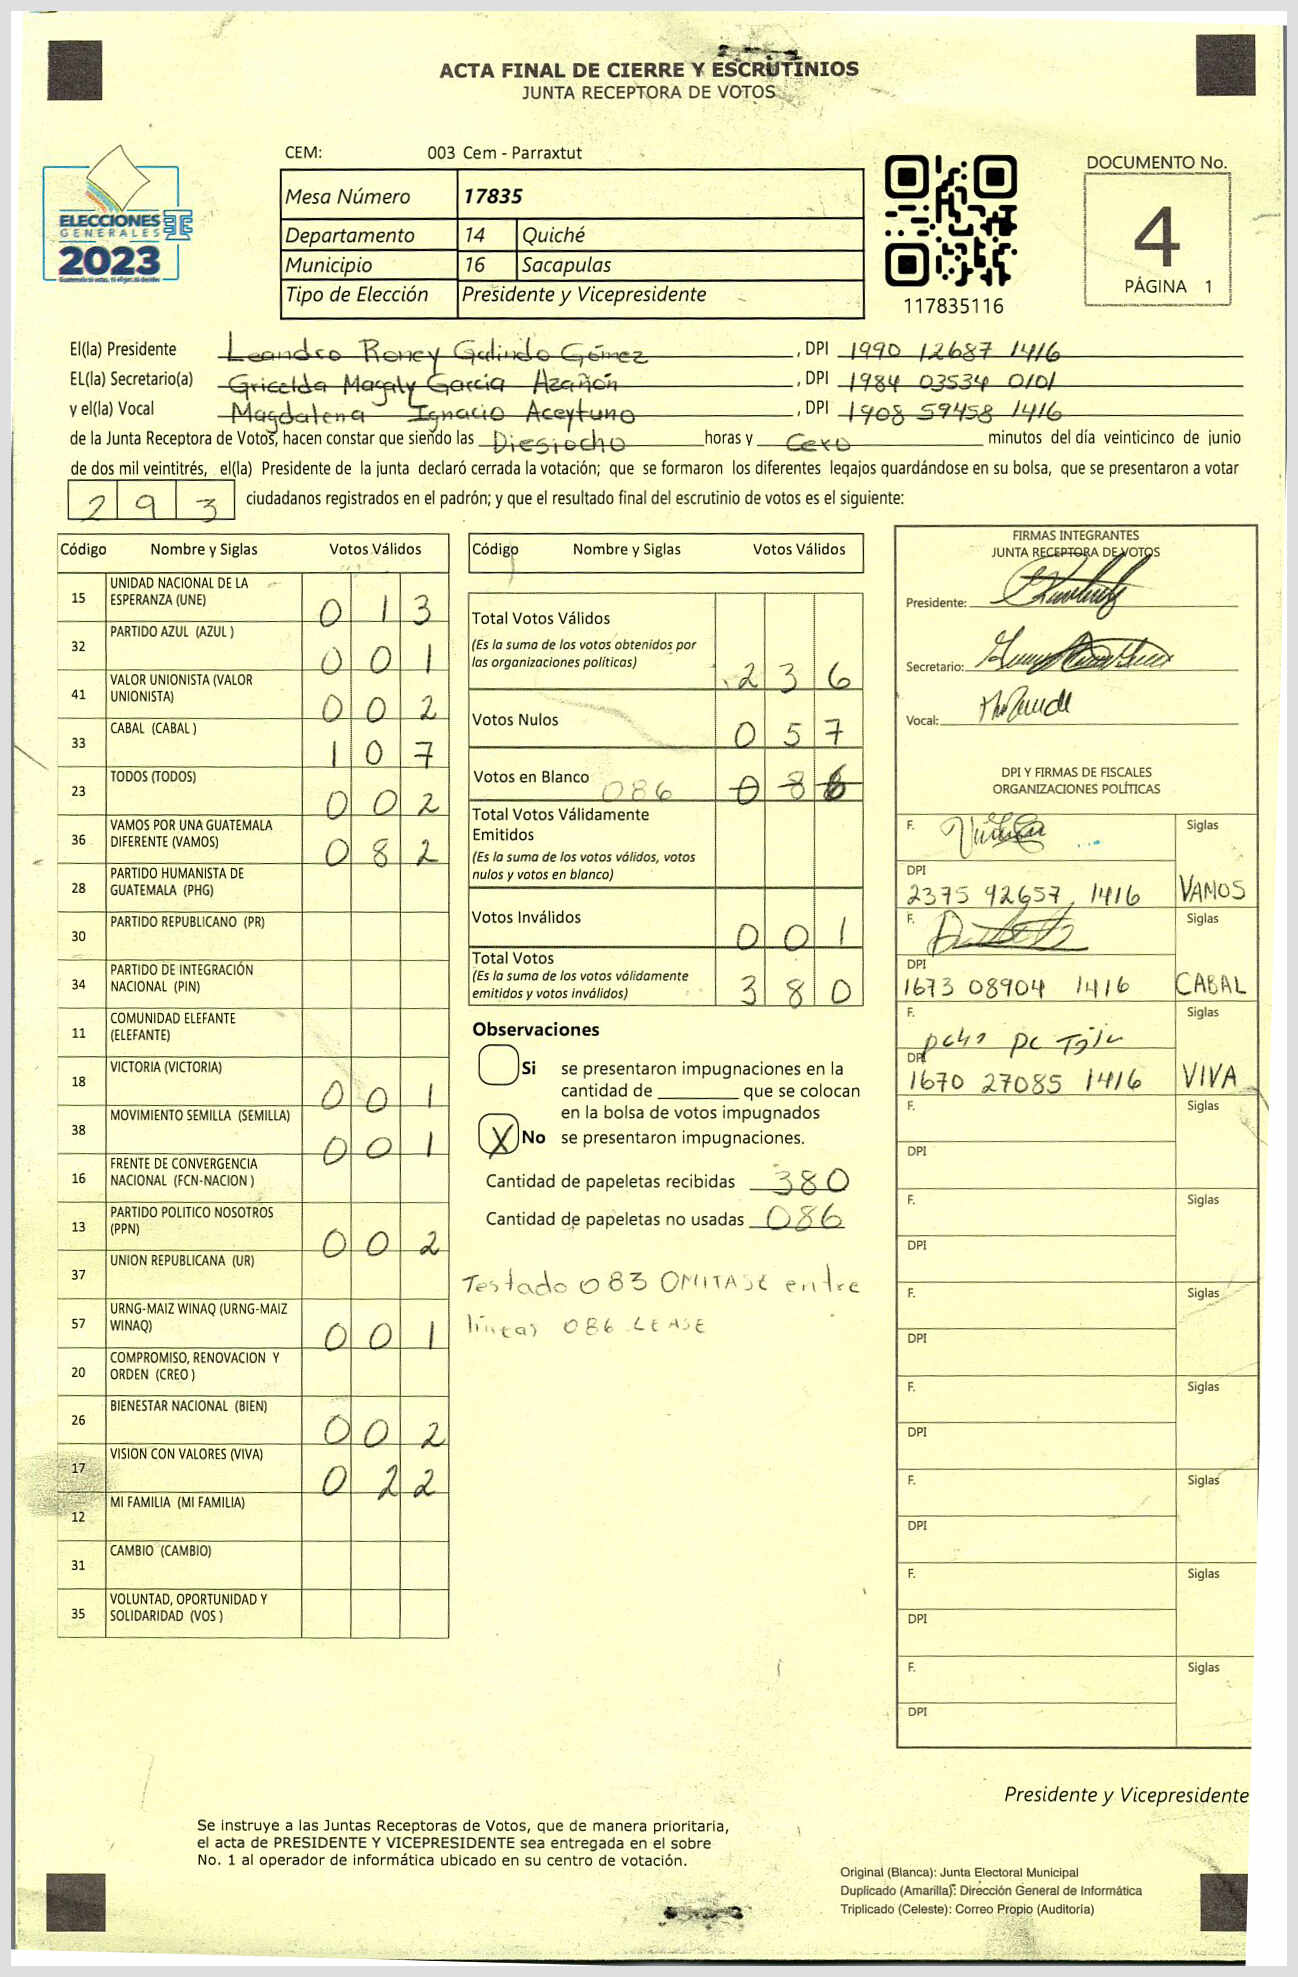 ACTA FINAL DE CIERRE Y ESCRUTINIOS
JUNTA RECEPTORA DE VOTOS
ELECCIONES
GENERALES
2023
CEM: 003 Cem - Parraxtut
Mesa Número 17835
Departamento 14 Quiché
Municipio 16 Sacapulas
Tipo de Elección Presidente y Vicepresidente
117835116
DOCUMENTO No.
4
PÁGINA 1
El(la) Presidente Leandro Roney Galindo Gómez, DPI 1990 12687 1416
EL(la) Secretario(a) Gricelda Magaly Garcia Azañón, DPI 1984 03534 0101
y el(la) Vocal Magdalena Ignacio Aceytuno, DPI 1908 59458 1416
de la Junta Receptora de Votos, hacen constar que siendo las Diesiocho horas y Cero minutos del día veinticinco de junio
de dos mil veintitrés, el(la) Presidente de la junta declaró cerrada la votación; que se formaron los diferentes legajos guardándose en su bolsa, que se presentaron a votar
293 ciudadanos registrados en el padrón; y que el resultado final del escrutinio de votos es el siguiente:
Código Nombre y Siglas Votos Válidos
15 UNIDAD NACIONAL DE LA ESPERANZA (UNE) 013
32 PARTIDO AZUL (AZUL ) 001
41 VALOR UNIONISTA (VALOR UNIONISTA) 002
33 CABAL (CABAL ) 107
23 TODOS (TODOS) 002
36 VAMOS POR UNA GUATEMALA DIFERENTE (VAMOS) 082
28 PARTIDO HUMANISTA DE GUATEMALA (PHG)
30 PARTIDO REPUBLICANO (PR)
34 PARTIDO DE INTEGRACIÓN NACIONAL (PIN)
11 COMUNIDAD ELEFANTE (ELEFANTE)
18 VICTORIA (VICTORIA) 001
38 MOVIMIENTO SEMILLA (SEMILLA) 001
16 FRENTE DE CONVERGENCIA NACIONAL (FCN-NACION )
13 PARTIDO POLITICO NOSOTROS (PPN) 002
37 UNION REPUBLICANA (UR)
57 URNG-MAIZ WINAQ (URNG-MAIZ WINAQ) 001
20 COMPROMISO, RENOVACION Y ORDEN (CREO )
26 BIENESTAR NACIONAL (BIEN) 002
17 VISION CON VALORES (VIVA) 022
12 MI FAMILIA (MI FAMILIA)
31 CAMBIO (CAMBIO)
35 VOLUNTAD, OPORTUNIDAD Y SOLIDARIDAD (VOS )
Código Nombre y Siglas Votos Válidos
Total Votos Válidos 236
(Es la suma de los votos obtenidos por
las organizaciones políticas)
Votos Nulos 057
Votos en Blanco 086
Total Votos Válidamente
Emitidos
(Es la suma de los votos válidos, votos
nulos y votos en blanco)
Votos Inválidos 001
Total Votos 380
(Es la suma de los votos válidamente
emitidos y votos inválidos)
Observaciones
Si se presentaron impugnaciones en la
cantidad de que se colocan
en la bolsa de votos impugnados
X No se presentaron impugnaciones.
Cantidad de papeletas recibidas 380
Cantidad de papeletas no usadas 086
Testado 083 OMITASE entre
lineas 086 LEASE
FIRMAS INTEGRANTES
JUNTA RECEPTORA DE VOTOS
Presidente:
Secretario:
Vocal:
DPI Y FIRMAS DE FISCALES
ORGANIZACIONES POLÍTICAS
F. Siglas
DPI
2375 92657 1416 VAMOS
F. Siglas
DPI
1673 08904 1416 CABAL
F. Siglas
DPI
1670 27085 1416 VIVA
F. Siglas
DPI
F. Siglas
DPI
F. Siglas
DPI
F. Siglas
DPI
F. Siglas
DPI
F. Siglas
DPI
F. Siglas
DPI
Presidente y Vicepresidente
Se instruye a las Juntas Receptoras de Votos, que de manera prioritaria,
el acta de PRESIDENTE Y VICEPRESIDENTE sea entregada en el sobre
No. 1 al operador de informática ubicado en su centro de votación.
Original (Blanca): Junta Electoral Municipal
Duplicado (Amarilla): Dirección General de Informática
Triplicado (Celeste): Correo Propio (Auditoria)